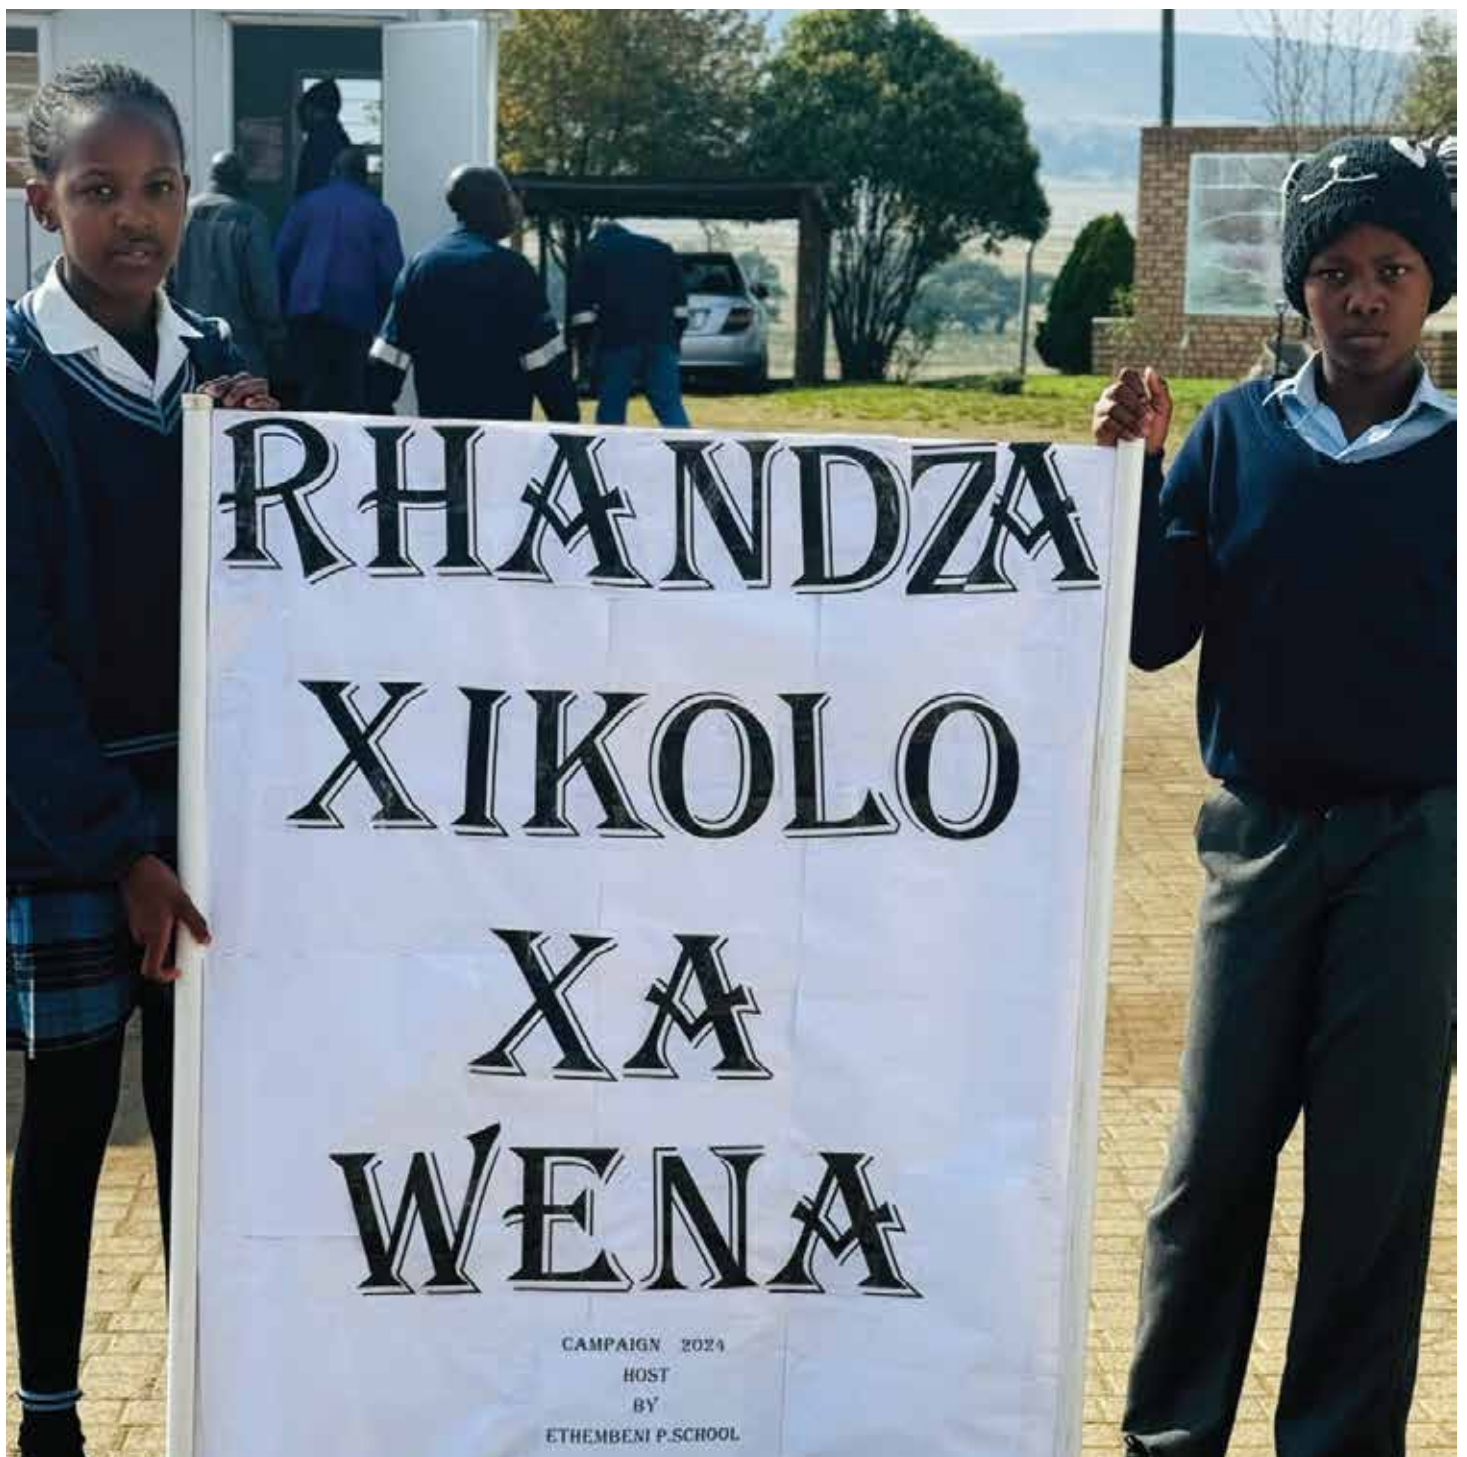 RHANDZA
XIKOLO
XA
WENA
CAMPAIGN 2024
HOST
BY
ETHEMBENI P.SCHOOL